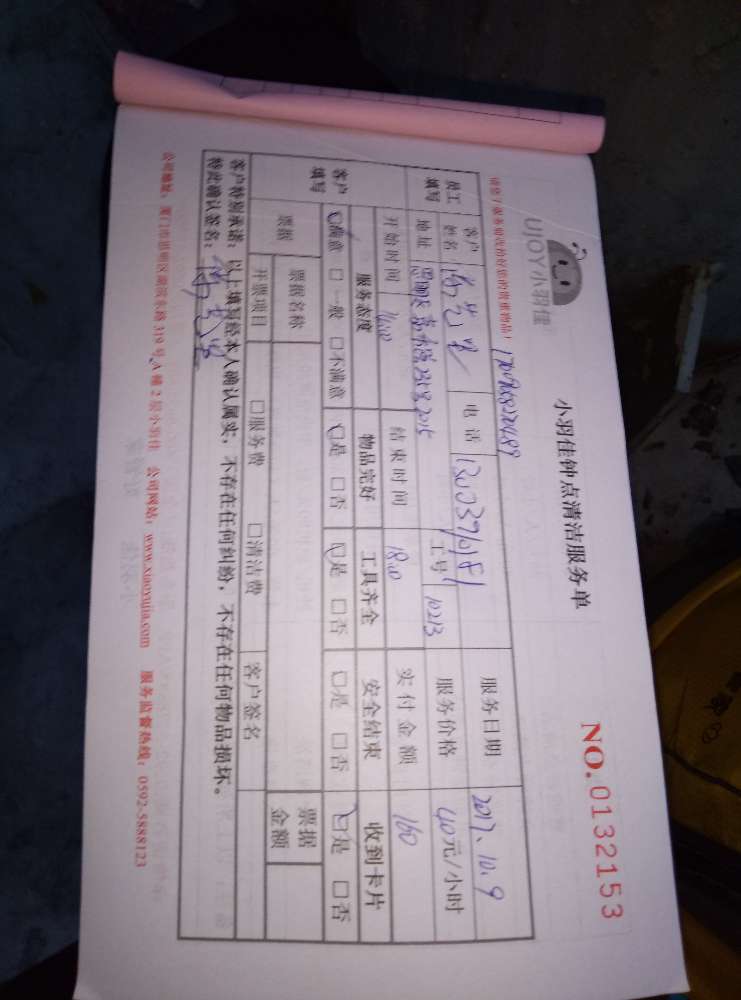 UJOY小羽佳
小羽佳钟点清洁服务单
NO.0132153
请您于服务前收拾好您的贵重物品！
员工填写 客户姓名 电话 13003970181 服务日期 2017.10.9
地址 工号 10213 服务价格 40元/小时
开始时间 14:00 结束时间 18:00 实付金额 160
客户填写 服务态度 物品完好 工具齐全 安全结束 收到卡片
☑满意 □一般 □不满意 ☑是 □否 ☑是 □否 □是 □否 ☑是 □否
票据 票据名称 客户签名 票据金额
开票项目 □服务费 □清洁费
客户特别承诺：以上填写经本人确认属实，不存在任何纠纷，不存在任何物品损坏。
特此确认签名：
公司地址：厦门市思明区湖滨东路319号A幢2层小羽佳 公司网站：www.xiaoyujia.com 服务监督热线：0592-5888123